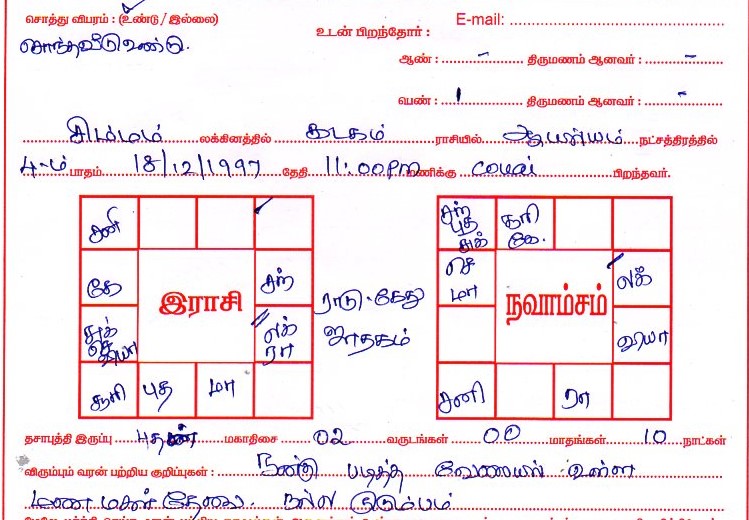 சொத்து விபரம் : (உண்டு / இல்லை)
E-mail:
சொந்தவீடு உண்டு.
உடன் பிறந்தோர் :
ஆண் : - திருமணம் ஆனவர் : -
பெண் : 1 திருமணம் ஆனவர் : -
சிம்மம் லக்கினத்தில் கடகம் ராசியில் ஆயில்யம் நட்சத்திரத்தில்
4-ம் பாதம் 18/12/1997 தேதி 11:00PM மணிக்கு கோவை பிறந்தவர்.
சனி
கே
சந்
இராசி
சுக்
செ
வியா
லக்
ரா
சூரி புத மா
ராகு-கேது
ஜாதகம்
சந்
புத
சுக்
சூரி
கே.
செ
மா
லக்
நவாம்சம்
வியா
சனி ரா
தசாபுத்தி இருப்பு புதன் மகாதிசை 02 வருடங்கள் 00 மாதங்கள் 10 நாட்கள்
விரும்பும் வரன் பற்றிய குறிப்புகள் : நன்கு படித்த வேலையில் உள்ள
மணமகன் தேவை. நல்ல குடும்பம்